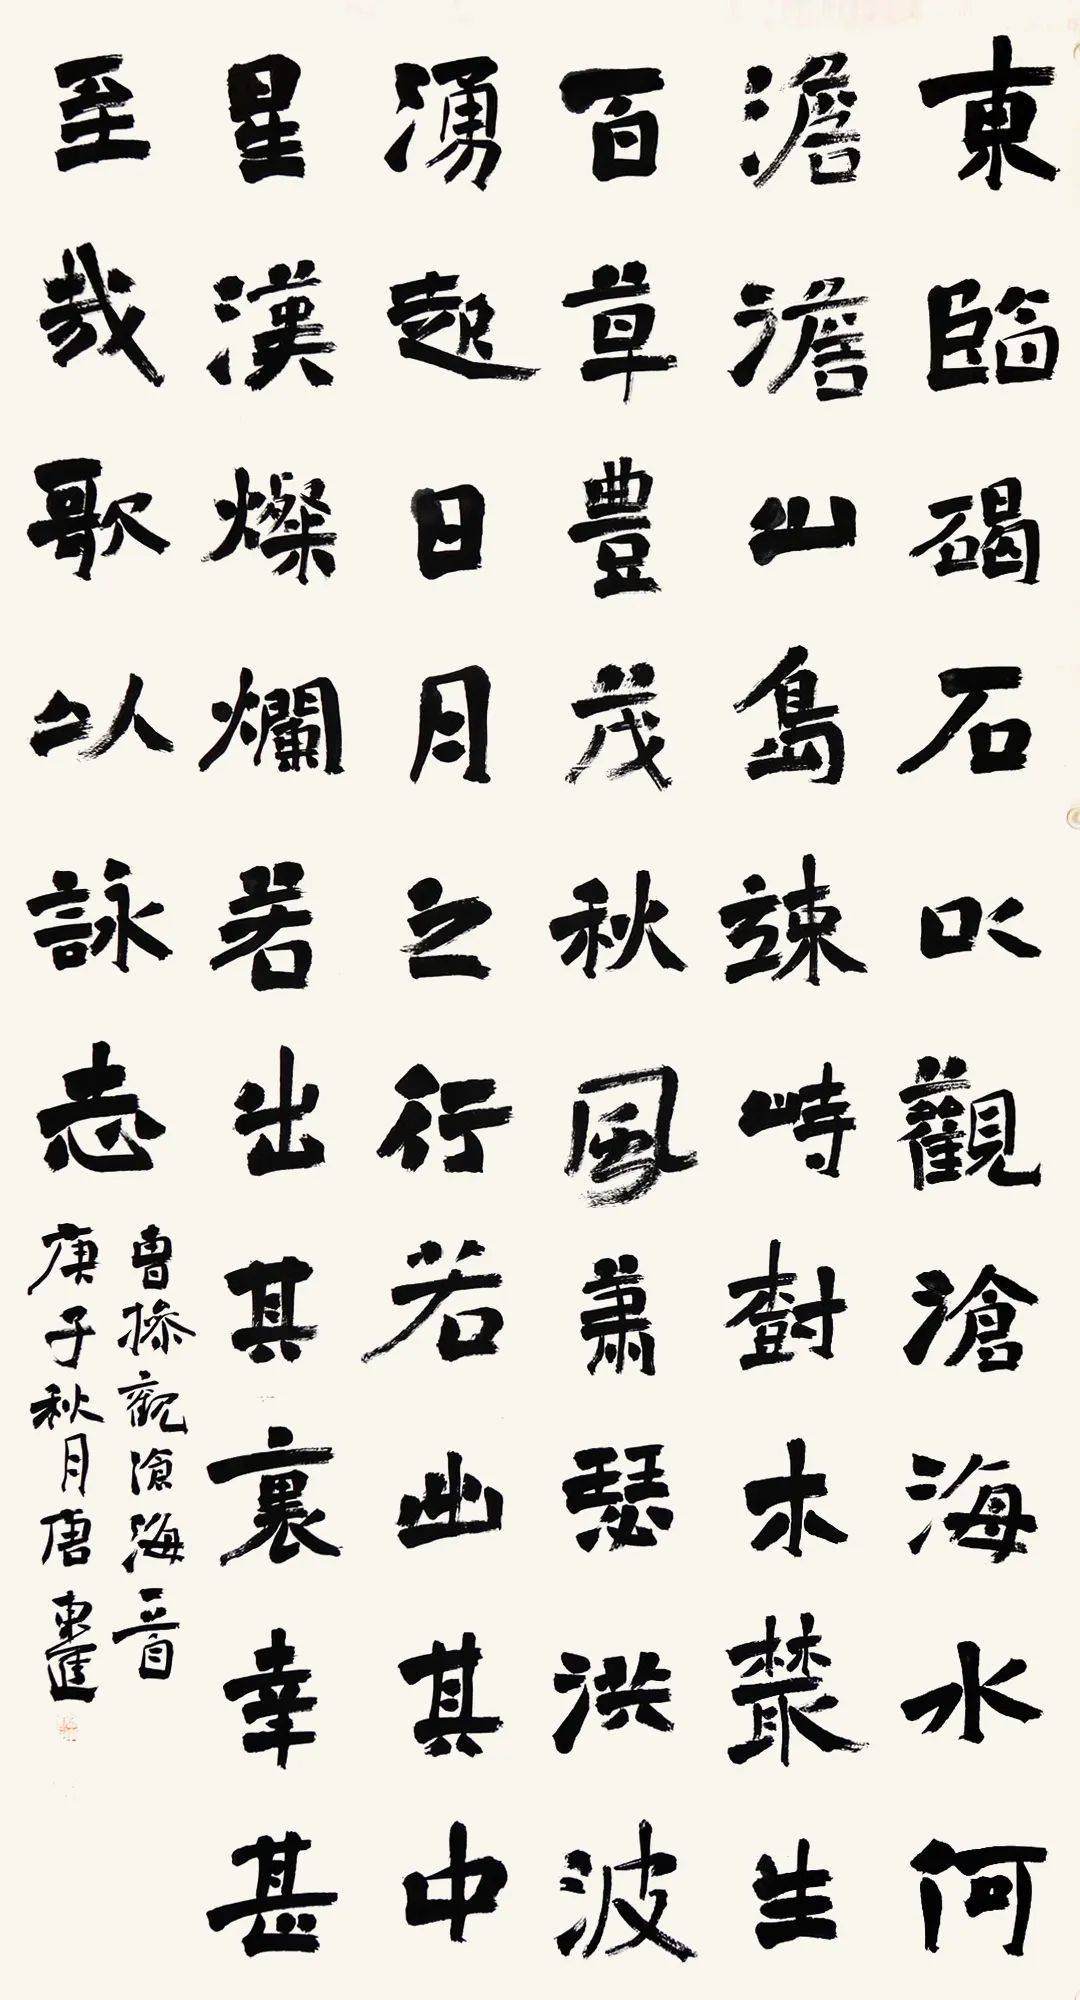 東臨碣石以觀滄海水何
澹澹山島竦峙樹木叢生
百草豐茂秋風蕭瑟洪波
湧起日月之行若出其中
星漢燦爛若出其裏幸甚
至哉歌以詠志
曹操觀滄海一首
庚子秋月唐東進